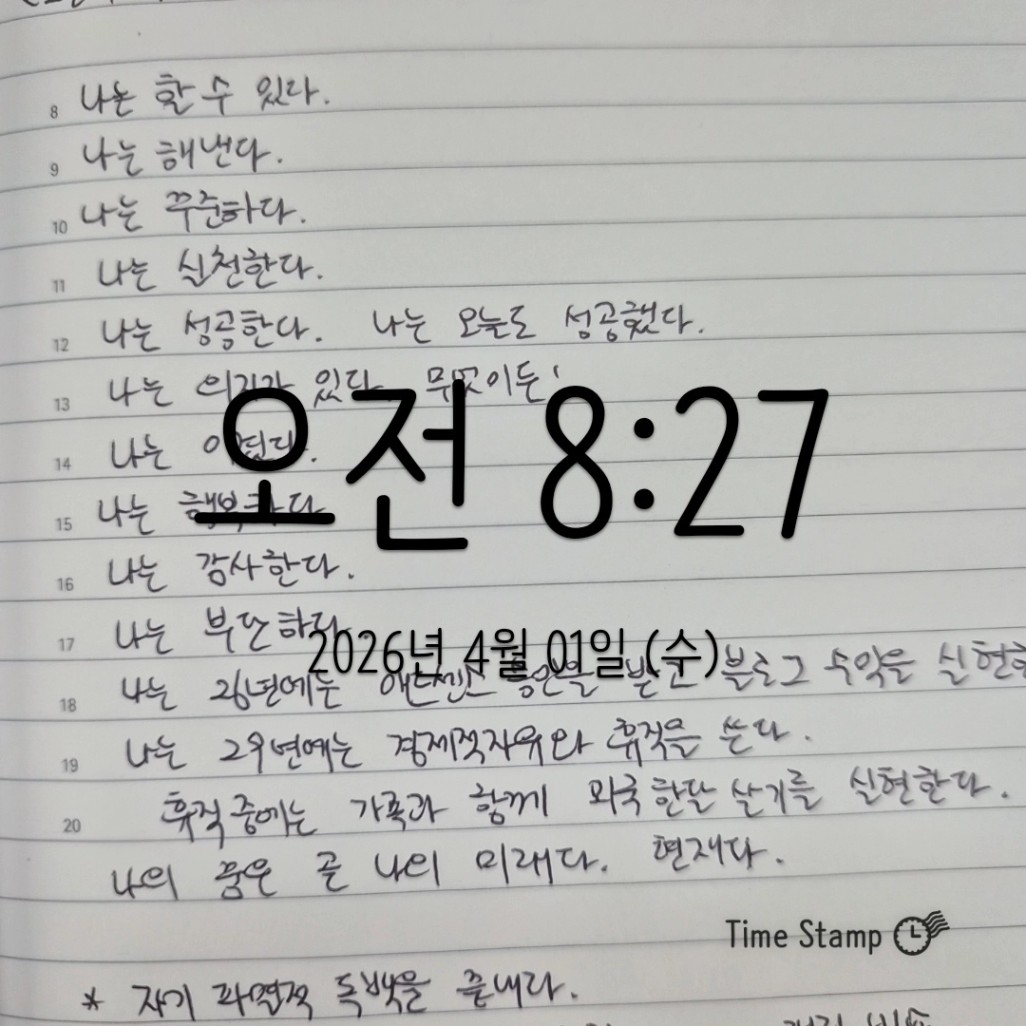 8 나는 할 수 있다.
9 나는 해낸다.
10 나는 꾸준하다.
11 나는 실천한다.
12 나는 성공한다. 나는 오늘도 성공했다.
13 나는 의지가 있다. 무엇이든!
오전 8:27
14 나는 이겼다.
15 나는 행복하다
16 나는 감사한다.
17 나는 부단하다.
2026년 4월 01일 (수)
18 나는 26년에는 블로그 수익을 실현
19 나는 29년에는 경제적자유와 휴직을 쓴다.
20 휴직 중에는 가족과 함께 외국 한달 살기를 실현한다.
나의 꿈은 곧 나의 미래다. 현재다.
Time Stamp
* 자기 파멸적 독백을 끝내라.